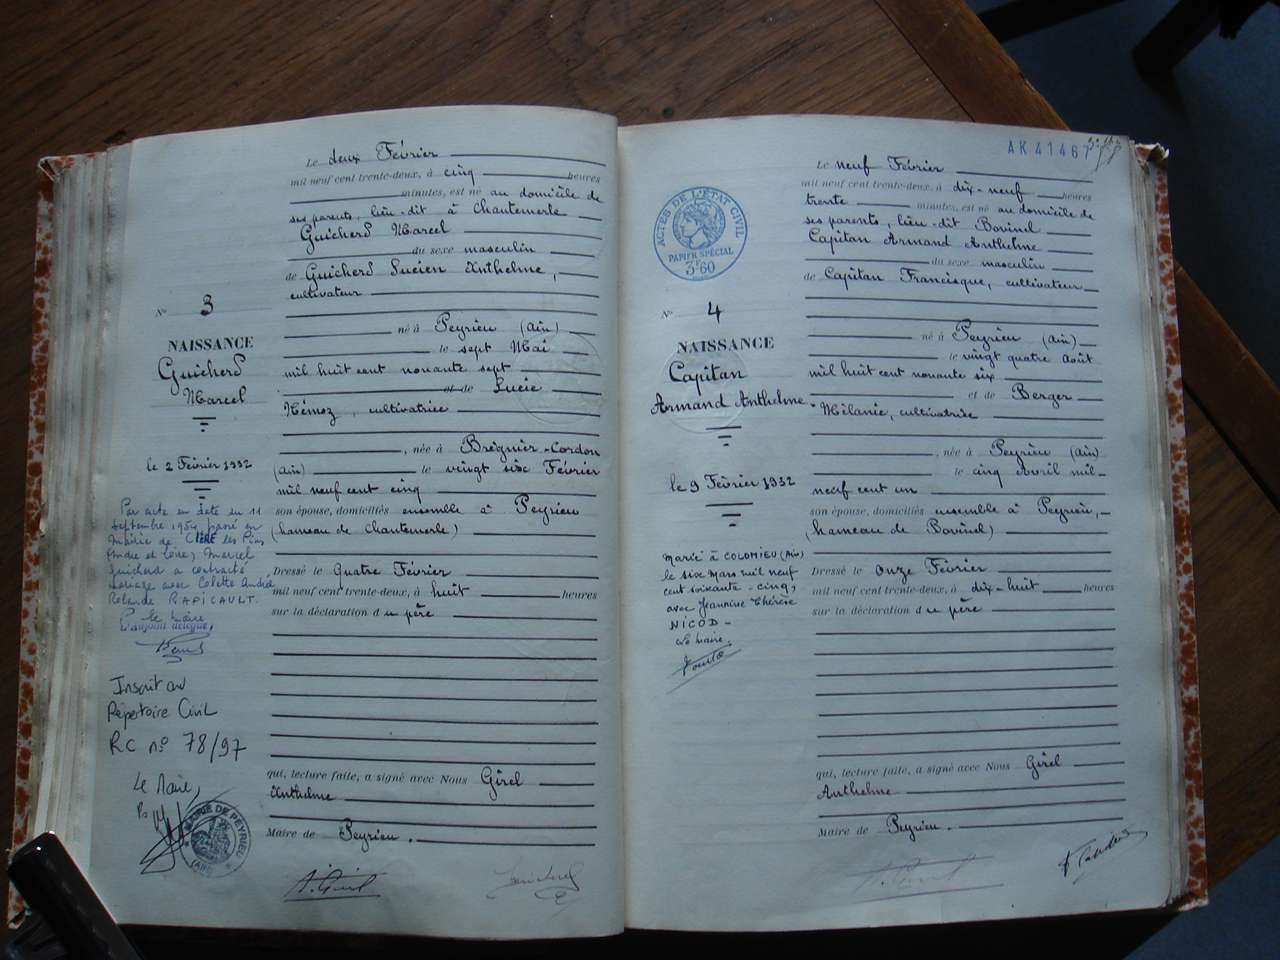 Le deux Février
mil neuf cent trente-deux, à cinq heures
minutes, est né au domicile de
ses parents, lieu-dit à Chantemerle
Guicherd Marcel
du sexe masculin
de Guicherd Lucien Anthelme,
cultivateur
né à Peyrieu (Ain)
le sept Mai
mil huit cent nonante sept
et de Lucie
Némoz, cultivatrice
, née à Brégnier-Cordon
(Ain) le vingt six Février
mil neuf cent cinq
son épouse, domiciliés ensemble à Peyrieu
(hameau de Chantemerle)
Dressé le Quatre Février
mil neuf cent trente-deux, à huit heures
sur la déclaration du père
qui, lecture faite, a signé avec Nous Girel
Anthelme
Maire de Peyrieu.
A. Girel
N° 3
NAISSANCE
Guicherd
Marcel
le 2 Février 1932
Par acte en date du 11
septembre 1954 passé en
Mairie de CIERE les Pins
(Indre et Loire) Marcel
Guicherd a contracté
mariage avec Colette Andrée
Rolande RAPICAULT.
P. le Maire
L'adjoint délégué,
Inscrit au
Répertoire Civil
RC n° 78/97
Le Maire,
MAIRIE DE PEYRIEU
(AIN)
AK 41467
ACTES DE L'ETAT CIVIL
PAPIER SPÉCIAL
3F60
N° 4
NAISSANCE
Capitan
Armand Anthelme
le 9 Février 1932
Marié à COLOMIEU (Ain)
le six mars mil neuf
cent soixante-cinq,
avec Jeannine Thérèse
NICOD -
Le Maire.
Le neuf Février
mil neuf cent trente-deux, à dix-neuf heures
trente minutes, est né au domicile de
ses parents, lieu-dit Bovinel
Capitan Armand Anthelme
du sexe masculin
de Capitan Francisque, cultivateur
né à Peyrieu (Ain)
le vingt quatre Août
mil huit cent nonante six
et de Berger
Mélanie, cultivatrice
, née à Peyrieu (Ain)
le cinq Avril mil-
neuf cent un
son épouse, domiciliés ensemble à Peyrieu,
(hameau de Bovinel)
Dressé le Onze Février
mil neuf cent trente-deux, à dix-huit heures
sur la déclaration du père
qui, lecture faite, a signé avec Nous Girel
Anthelme
Maire de Peyrieu.
A. Girel